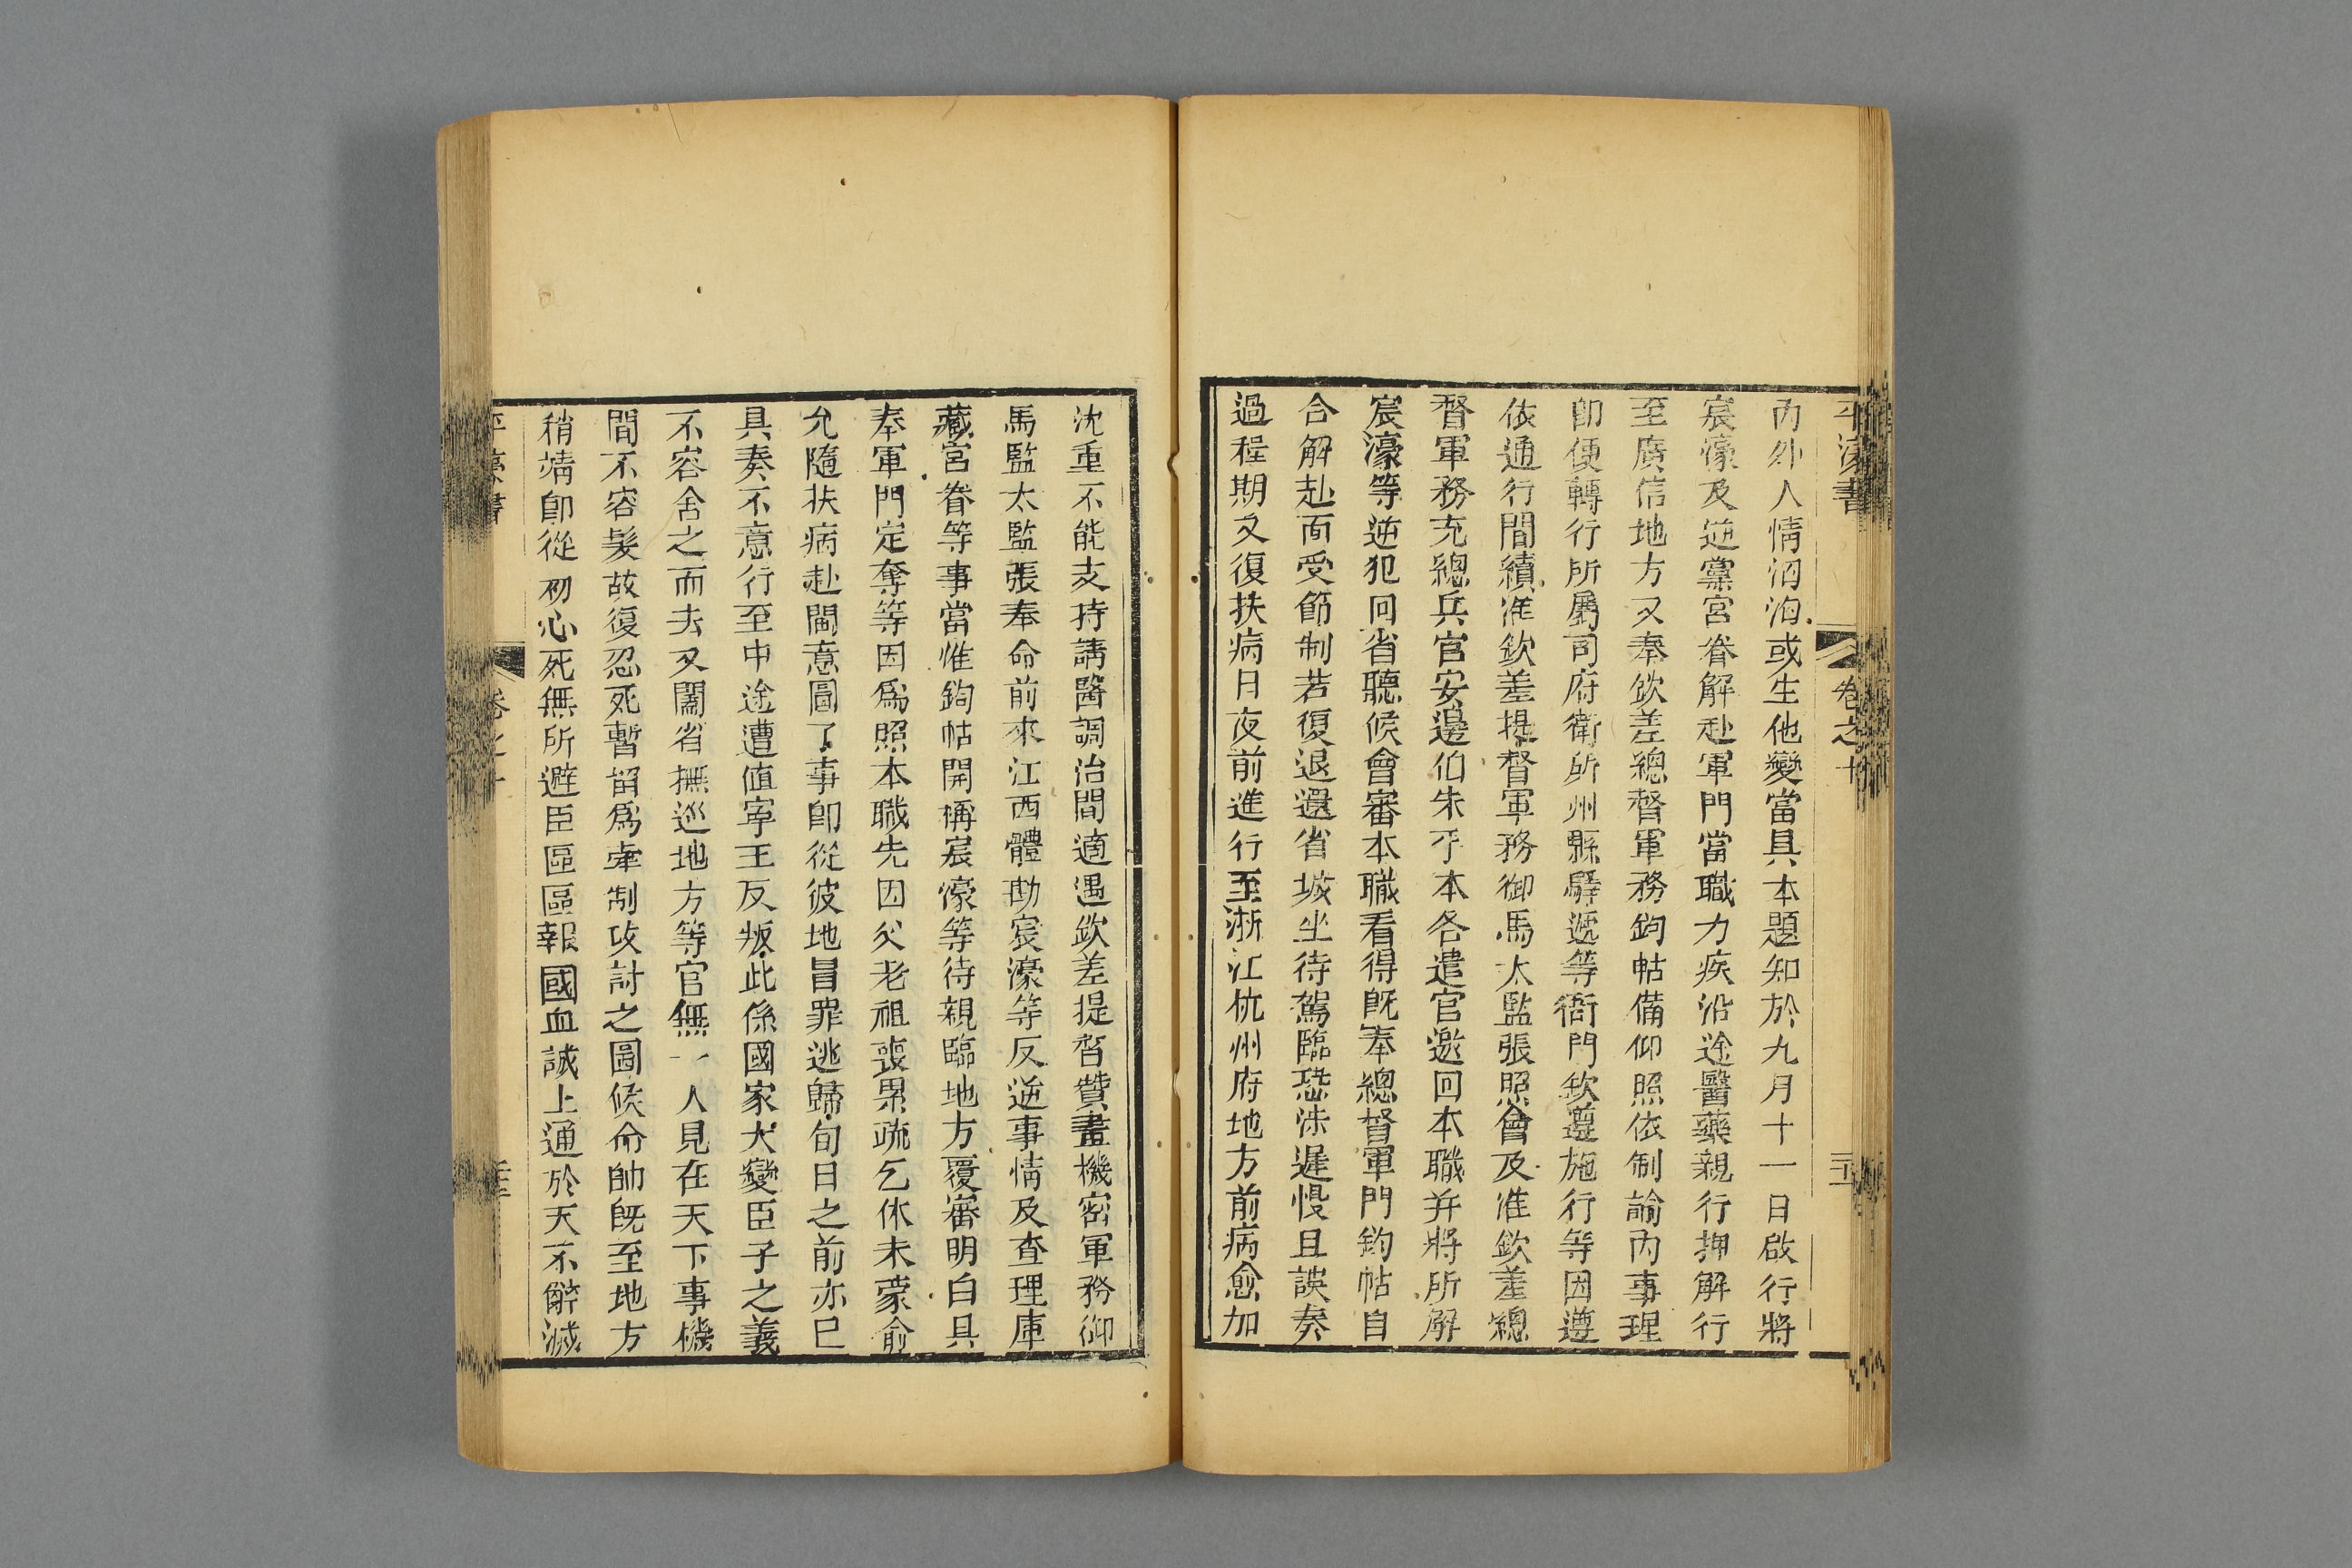 平濠書 卷之十
內外人情洶洶或生他變當具本題知於九月十一日啟行將
宸濠及逆黨宮眷解赴軍門當職力疾沿途醫藥親行押解行
至廣信地方又奉欽差總督軍務鈞帖備仰照依制諭內事理
卽便轉行所屬司府衛所州縣驛遞等衙門欽遵施行等因遵
依通行間續准欽差提督軍務御馬太監張照會及准欽差總
督軍務充總兵官安邊伯朱手本各遣官邀回本職并將所解
宸濠等逆犯回省聽候會審本職看得旣奉總督軍門鈞帖自
合解赴面受節制若復退還省城坐待駕臨恐涉遲慢且誤奏
過程期又復扶病日夜前進行至浙江杭州府地方前病愈加
沈重不能支持請醫調治間適遇欽差提督贊畫機密軍務御
馬監太監張奉命前來江西體勘宸濠等反逆事情及查理庫
藏宮眷等事當准鈞帖開稱宸濠等待親臨地方覆審明白具
奉軍門定奪等因爲照本職先因父老祖喪累疏乞休未蒙俞
允隨扶病赴閩意圖了事卽從彼地冒罪逃歸旬日之前亦已
具奏不意行至中途遭值寧王反叛此係國家大變臣子之義
不容舍之而去又闔省撫巡地方等官無一人見在天下事機
間不容髮故復忍死暫留爲牽制攻討之圖候命帥旣至地方
稍靖卽從初心死無所避臣區區報國血誠上通於天不辭滅
平濠書 卷之十